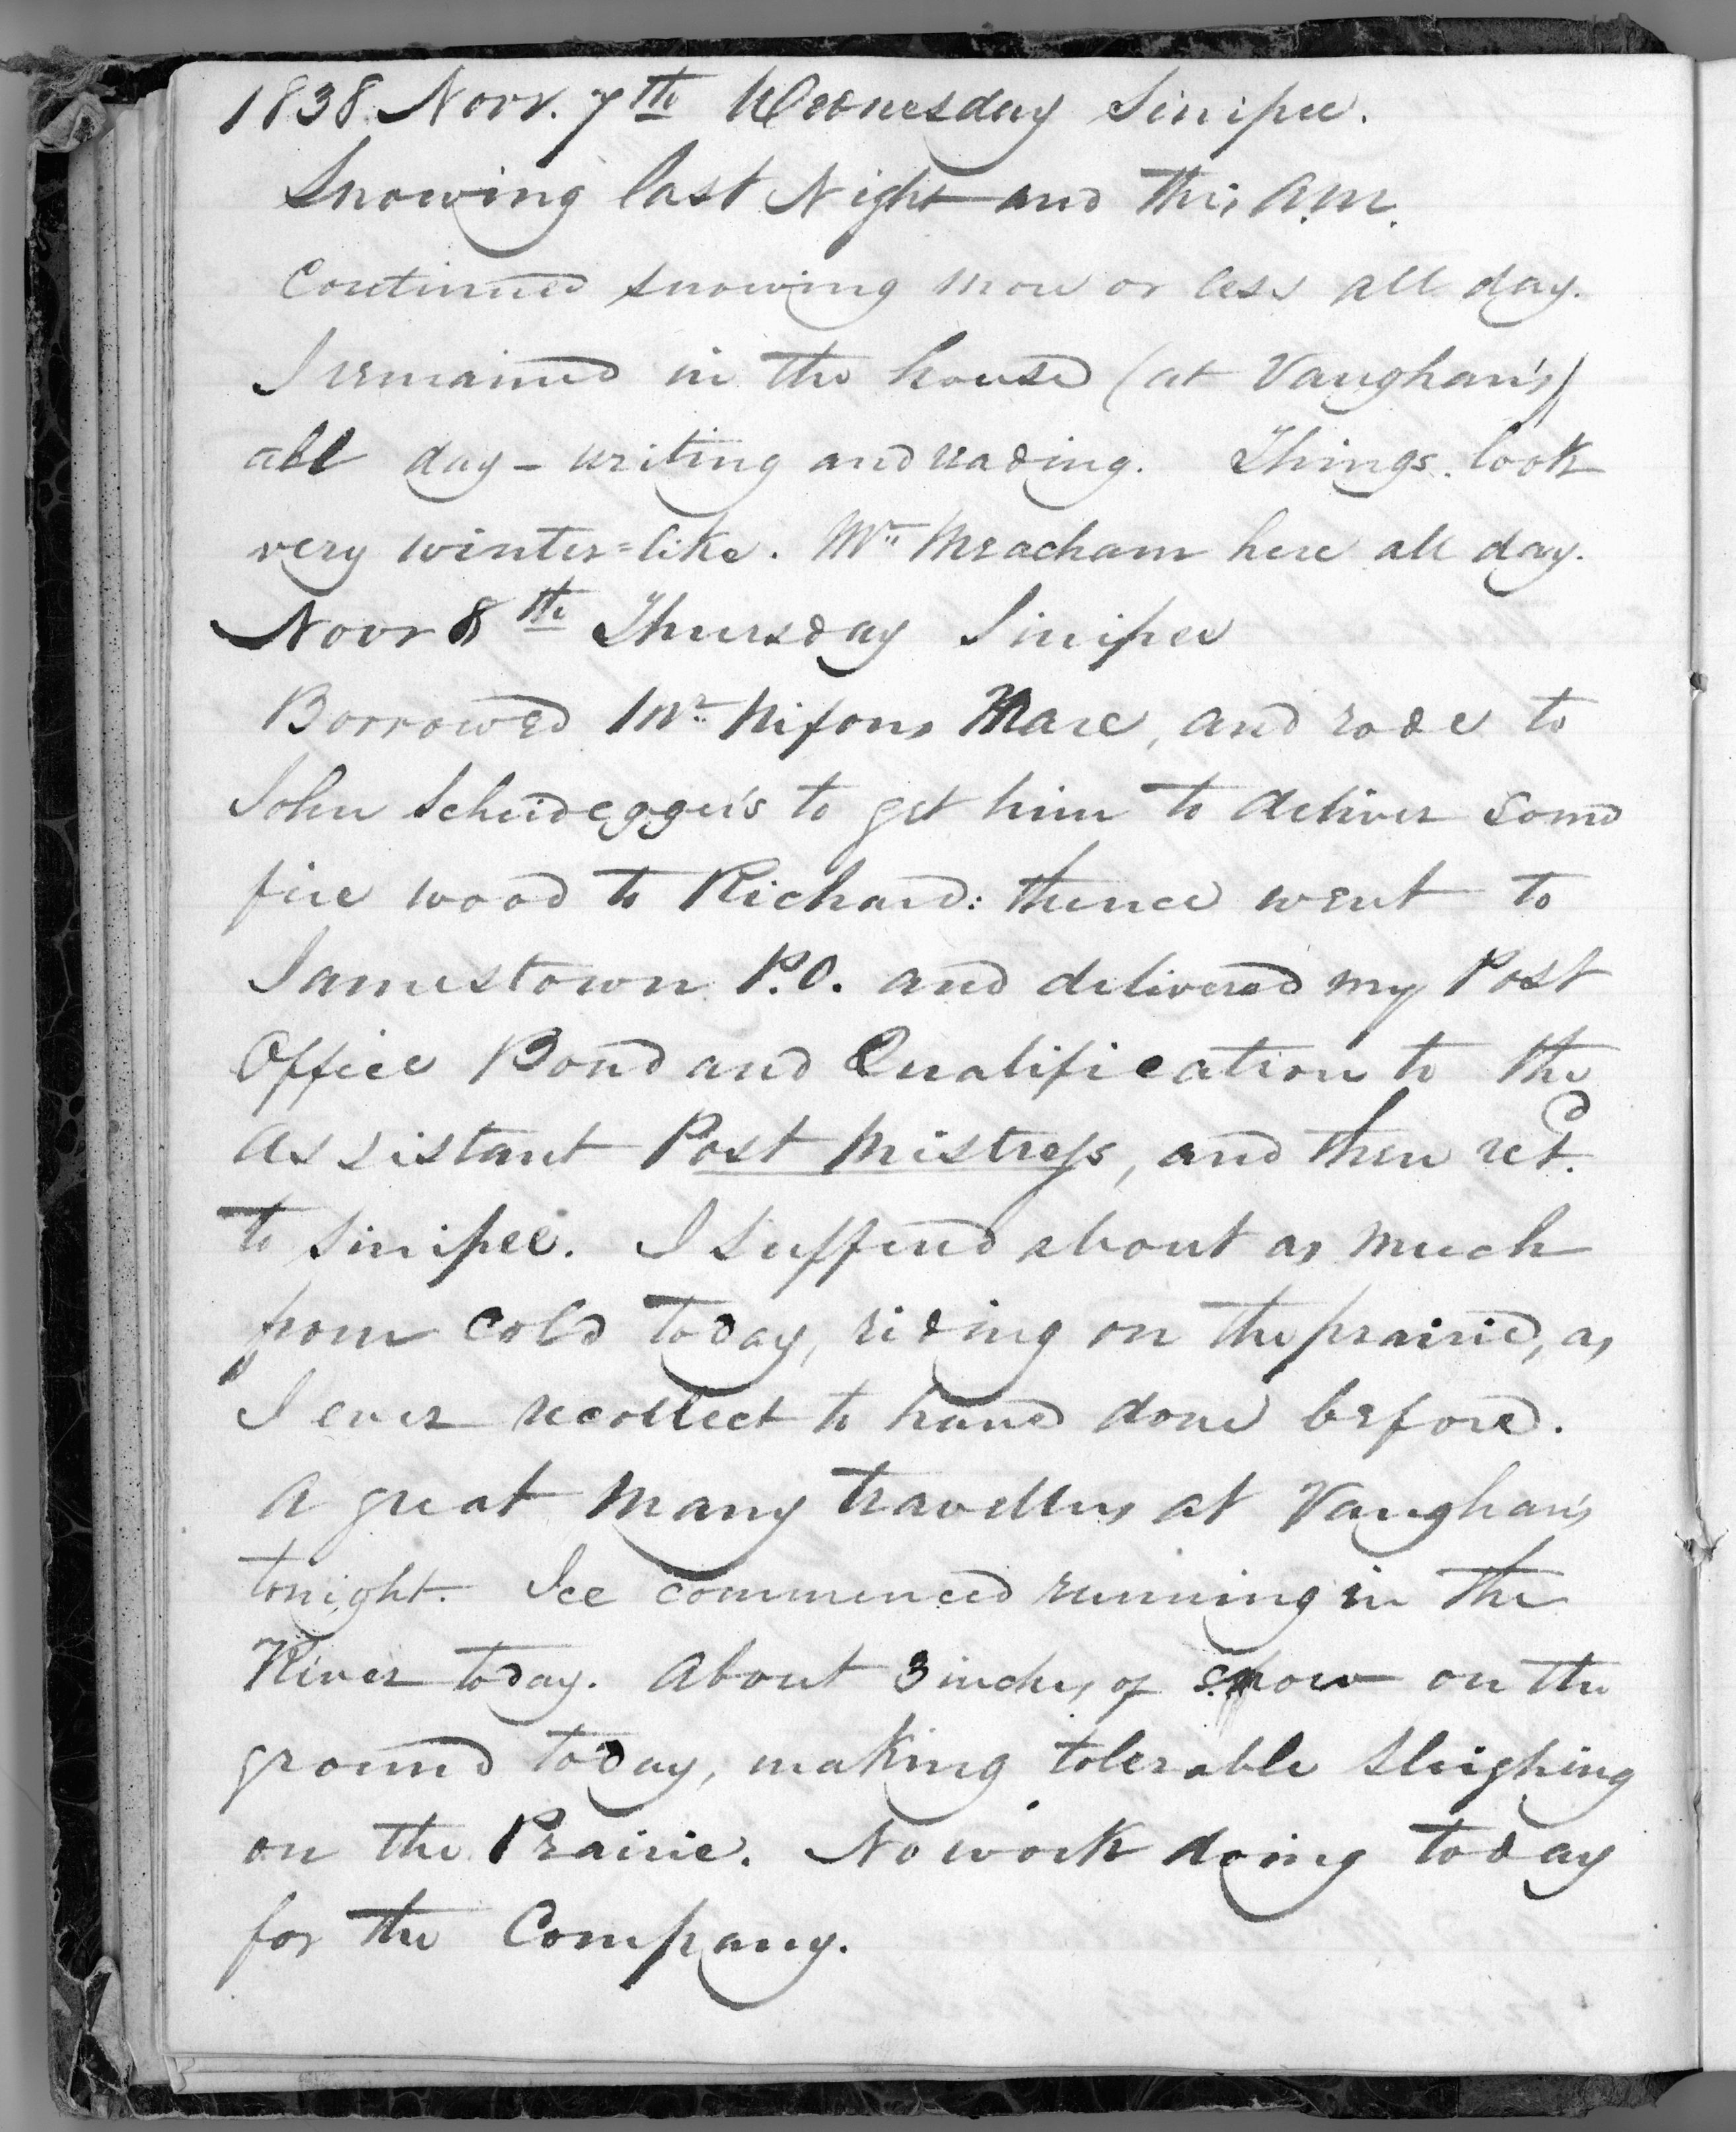 1838. Novr. 7th Wednesday Sinipee.
Snowing last Night and this A.M.
Continued snowing more or less all day.
I remained in the house (at Vaughan's)
all day - writing and reading. Things look
very winter=like. Mr. Meacham here all day.
Novr 8th Thursday Sinipee
Borrowed Mr. Nifons Mare, and rode to
John Scheidegger's to get him to deliver some
fire wood to Richard: thence went to
Jamestown P.O. and delivered my Post
Office Bond and Qualification to the
Assistant Post Mistress, and then retd.
to Sinipee. I suffered about as much
from cold today, riding on the prairie, as
I ever recollect to have done before.
A great many travellers at Vaughan's
tonight. Ice commenced running in the
River today. About 3 inches of snow on the
ground today, making tolerable sleighing
on the Prairie. No work doing today
for the Company.